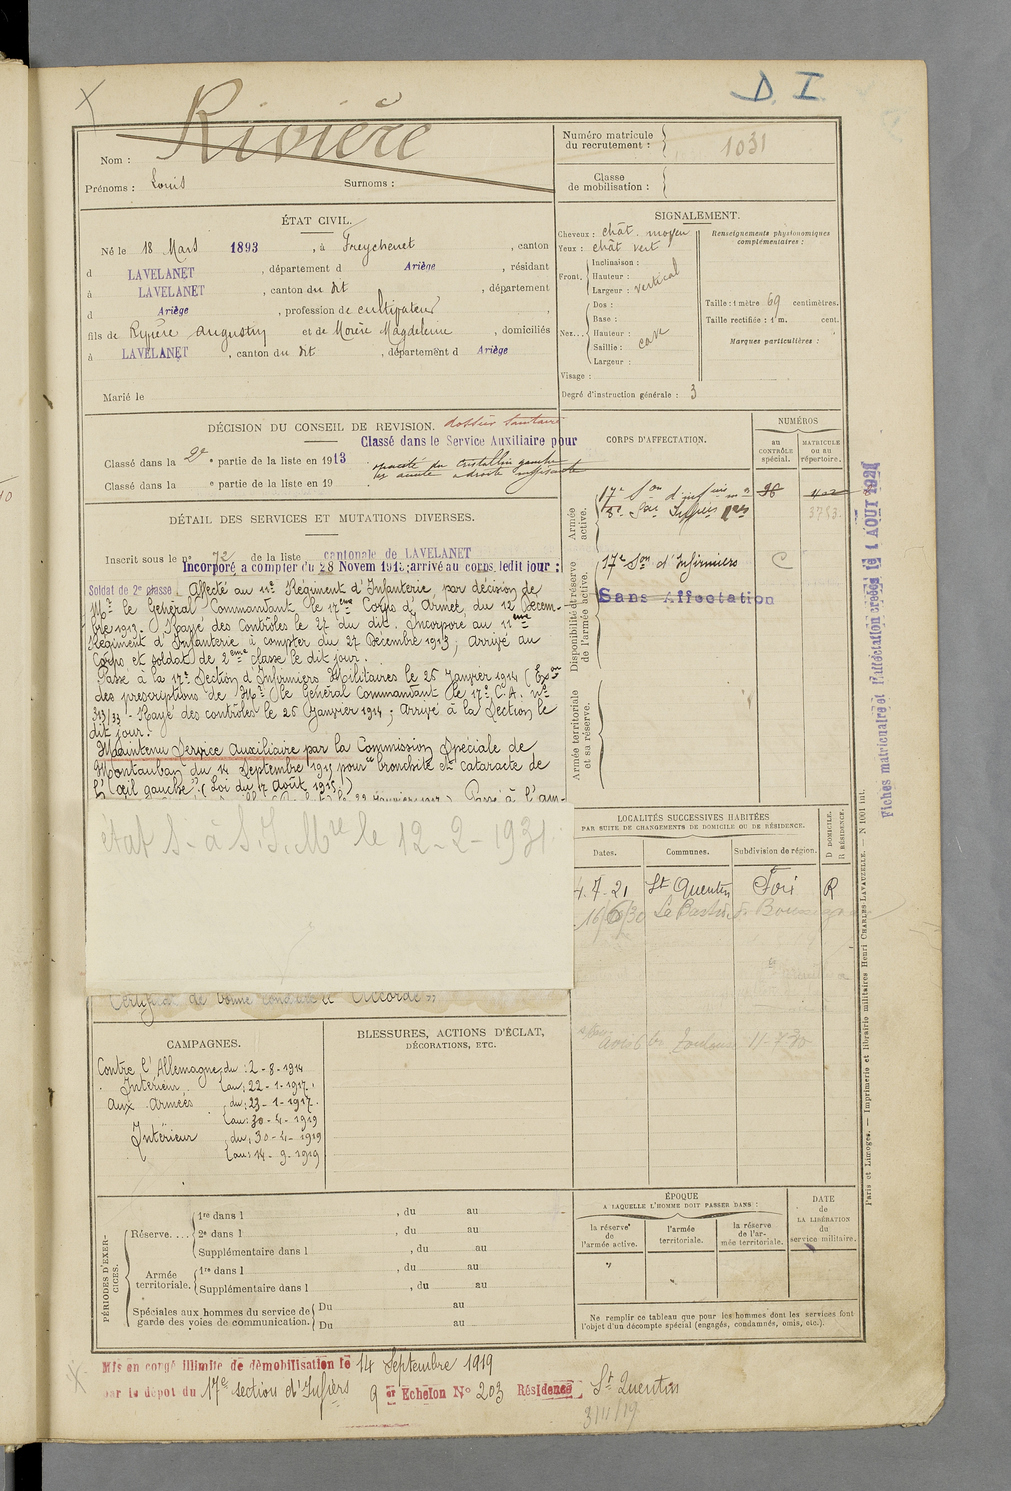 D. I.
Rivière
Nom :
Prénoms : Louis Surnoms :
Numéro matricule du recrutement : 1031
Classe de mobilisation :
ÉTAT CIVIL.
Né le 18 Mars 1893, à Freychenet, canton
d LAVELANET, département d Ariège, résidant
à LAVELANET, canton du dit, département
d Ariège, profession de cultivateur
fils de Rivière Augustin et de Morère Magdeleine, domiciliés
à LAVELANET, canton du dit, département d Ariège
Marié le
SIGNALEMENT.
Cheveux : chât. moyen
Yeux : chât vert
Front. Inclinaison :
Hauteur : vertical
Largeur :
Nez... Dos :
Base :
Hauteur : cave
Saillie :
Largeur :
Visage :
Degré d'instruction générale : 3
Renseignements physionomiques complémentaires :
Taille : 1 mètre 69 centimètres.
Taille rectifiée : 1 m. cent.
Marques particulières :
DÉCISION DU CONSEIL DE REVISION. dossier sanitaire
Classé dans le Service Auxiliaire pour
Classé dans la 2e partie de la liste en 1913
opacité du cristallin gauche
Classé dans la e partie de la liste en 19
DÉTAIL DES SERVICES ET MUTATIONS DIVERSES.
Inscrit sous le no 72 de la liste cantonale de LAVELANET
Incorporé a compter du 28 Novem 1913; arrivé au corps ledit jour :
Soldat de 2e classe. Affecté au 11e Régiment d'Infanterie, par décision de
Mr le Général Commandant le 17me Corps d'Armée, du 12 Décem-
bre 1913. Rayé des Contrôles le 27 du dit. Incorporé au 11eme
Régiment d'Infanterie à compter du 27 Décembre 1913; Arrivé au
Corps et soldat de 2eme classe le dit jour.
Passé à la 17e Section d'Infirmiers Militaires le 26 Janvier 1914 (Exon
des prescriptions de Mr le Général Commandant le 17e C.A. no
313/33 - Rayé des contrôles le 26 Janvier 1914; Arrivé à la Section le
dit jour.
Maintenu Service Auxiliaire par la Commission Spéciale de
Montauban du 14 Septembre 1915 pour "bronchite et cataracte de
l'œil gauche". (Loi du 17 Août 1915)
état S. à S.I.Mre le 12-2-1931
Certificat de bonne conduite "Accordé"
CORPS D'AFFECTATION.
NUMÉROS
au CONTRÔLE spécial.
MATRICULE ou au répertoire.
Armée active.
17e Son d'infirmiers
3753
Disponibilité et réserve de l'armée active.
17e Son d'Infirmiers C
Sans Affectation
Armée territoriale et sa réserve.
Fiches matriculaire et d'affectation créées le 1 AOUT 1921
LOCALITÉS SUCCESSIVES HABITÉES
PAR SUITE DE CHANGEMENTS DE DOMICILE OU DE RÉSIDENCE.
Dates. Communes. Subdivision de région. D DOMICILE. R RÉSIDENCE.
4.7.21 St Quentin Foix R
16/6/30 La Bastide
Toulouse 11-7-30
CAMPAGNES.
Contre l'Allemagne du : 2-8-1914
Intérieur au : 22-1-1917.
Aux Armées du : 23-1-1917.
au : 30-4-1919
Intérieur du : 30-4-1919
au : 14-9-1919
BLESSURES, ACTIONS D'ÉCLAT,
DÉCORATIONS, ETC.
PÉRIODES D'EXERCICES.
Réserve.... 1re dans l , du au
2e dans l , du au
Supplémentaire dans l , du au
Armée territoriale. 1re dans l , du au
Supplémentaire dans l , du au
Spéciales aux hommes du service de garde des voies de communication. Du au
Du au
ÉPOQUE
A LAQUELLE L'HOMME DOIT PASSER DANS :
la réserve de l'armée active.
l'armée territoriale.
la réserve de l'armée territoriale.
DATE de LA LIBÉRATION du service militaire.
Ne remplir ce tableau que pour les hommes dont les services font
l'objet d'un décompte spécial (engagés, condamnés, omis, etc.).
Paris et Limoges. — Imprimerie et librairie militaires Henri CHARLES-LAVAUZELLE. — N 1001 int.
Mis en congé illimité de démobilisation le 14 Septembre 1919
par le dépôt du 17e section d'Infiers 9e Echelon No 203 Résidence St Quentin
3/11/19